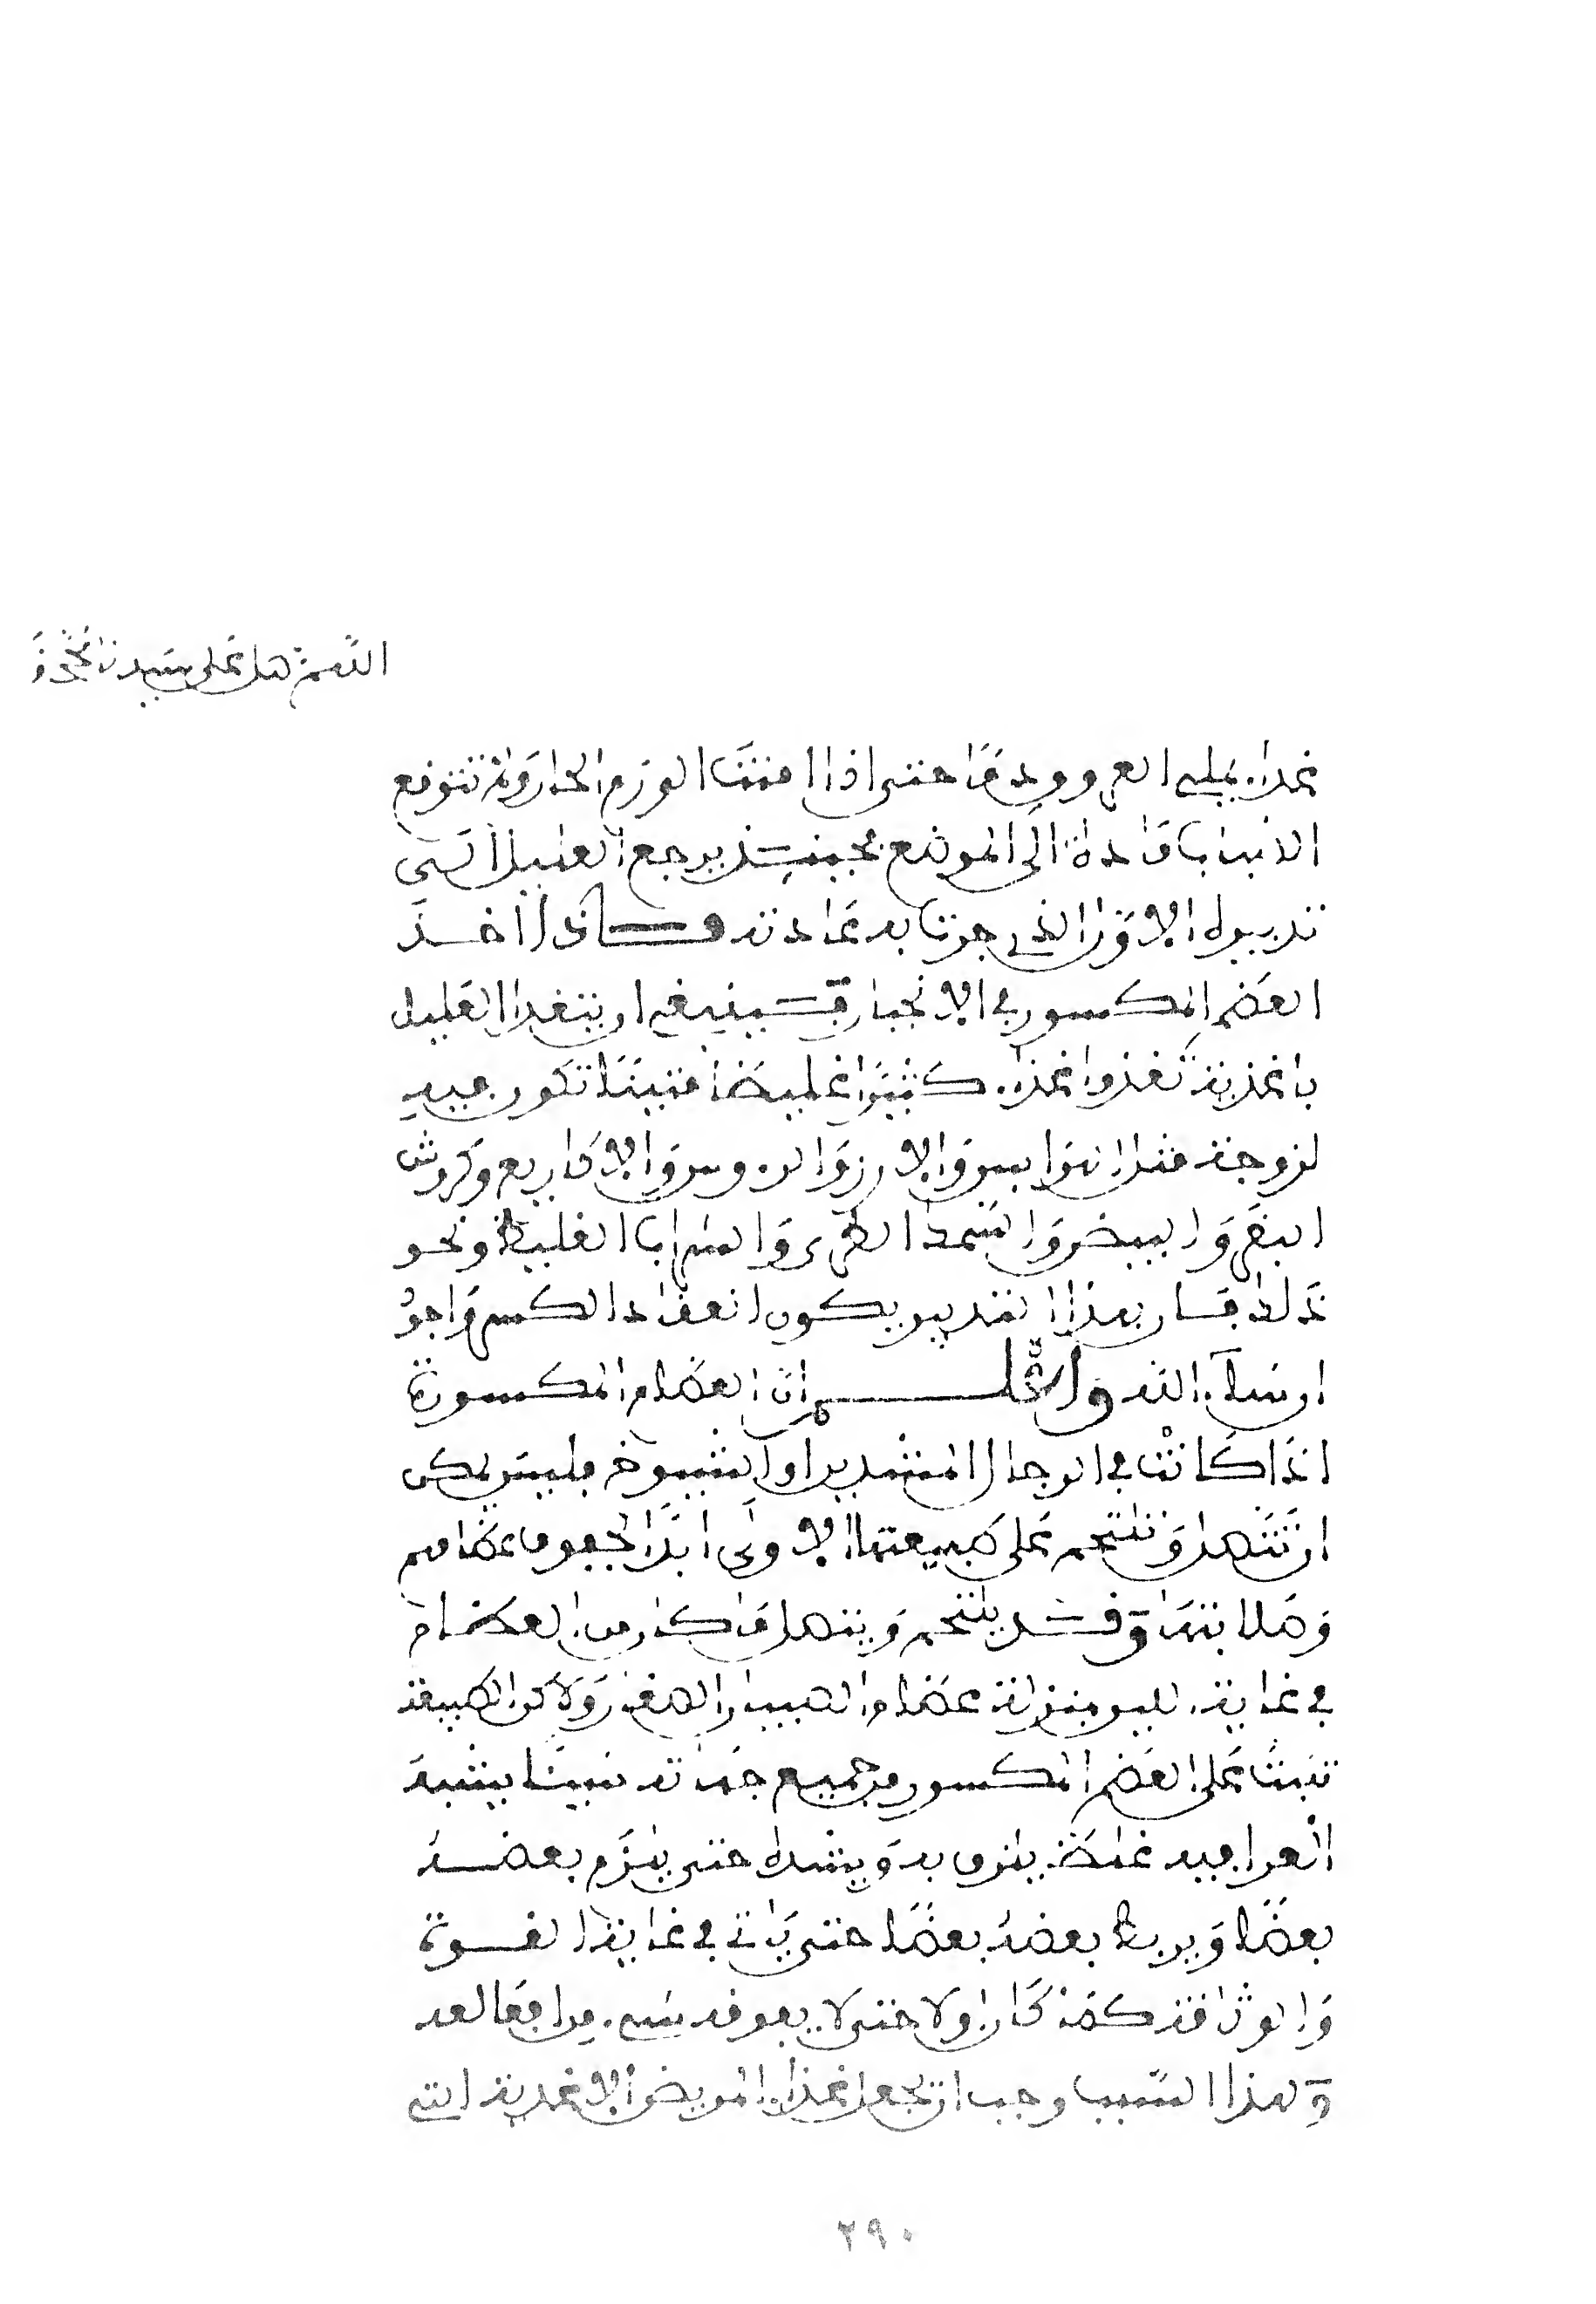 اللهم صل على سيدنا محمد و
غذاء العليل العروق وحدها حتى إذا امنت الورم الحار ولم تتوقع
انصباب مادة إلى الموضع فحينئذ يرجع العليل إلى
تدبيره الاول الذي جرت به عادته فإذا أخذ
العضم المكسور في الانجبار فينبغي ان يتغذا العليل
باغذية تغذوا غذاء كثيرا غليضا متينا تكون فيه
لزوجة مثل الهرايس والارز والروس والاكارع وكروش
البقر والبيض والسمك الطري والشراب الغليظ ونحو
ذلك فان بهذا التدبير يكون انعقاد الكسر واجود
ان شاء الله واعلم ان العضام المكسورة
اذا كانت في الرجال المسنين او الشيوخ فليس يمكن
ان تتصل وتلتحم على طبيعتها الاولى ابدا لجفوف عضامهم
وصلابتها وقد يلتحم ويتصل ما كان من العضام
في غاية اللين بمنزلة عضام الصبيان الصغار ولاكن الطبيعة
تنبت على العضم المكسور من جميع جهاته شيئا يشبه
الغرا فيه غلظ يلزق به ويشده حتى يلزم بعضه
بعضا ويربط بعضه بعضا حتى ياتي في غاية القوة
والوثاقة كما كان اولا حتى لا يعوقه شيء من افعاله
ولهذا السبب وجب ان تجعل غذاء المريض الاغذية التي
٢٩٠